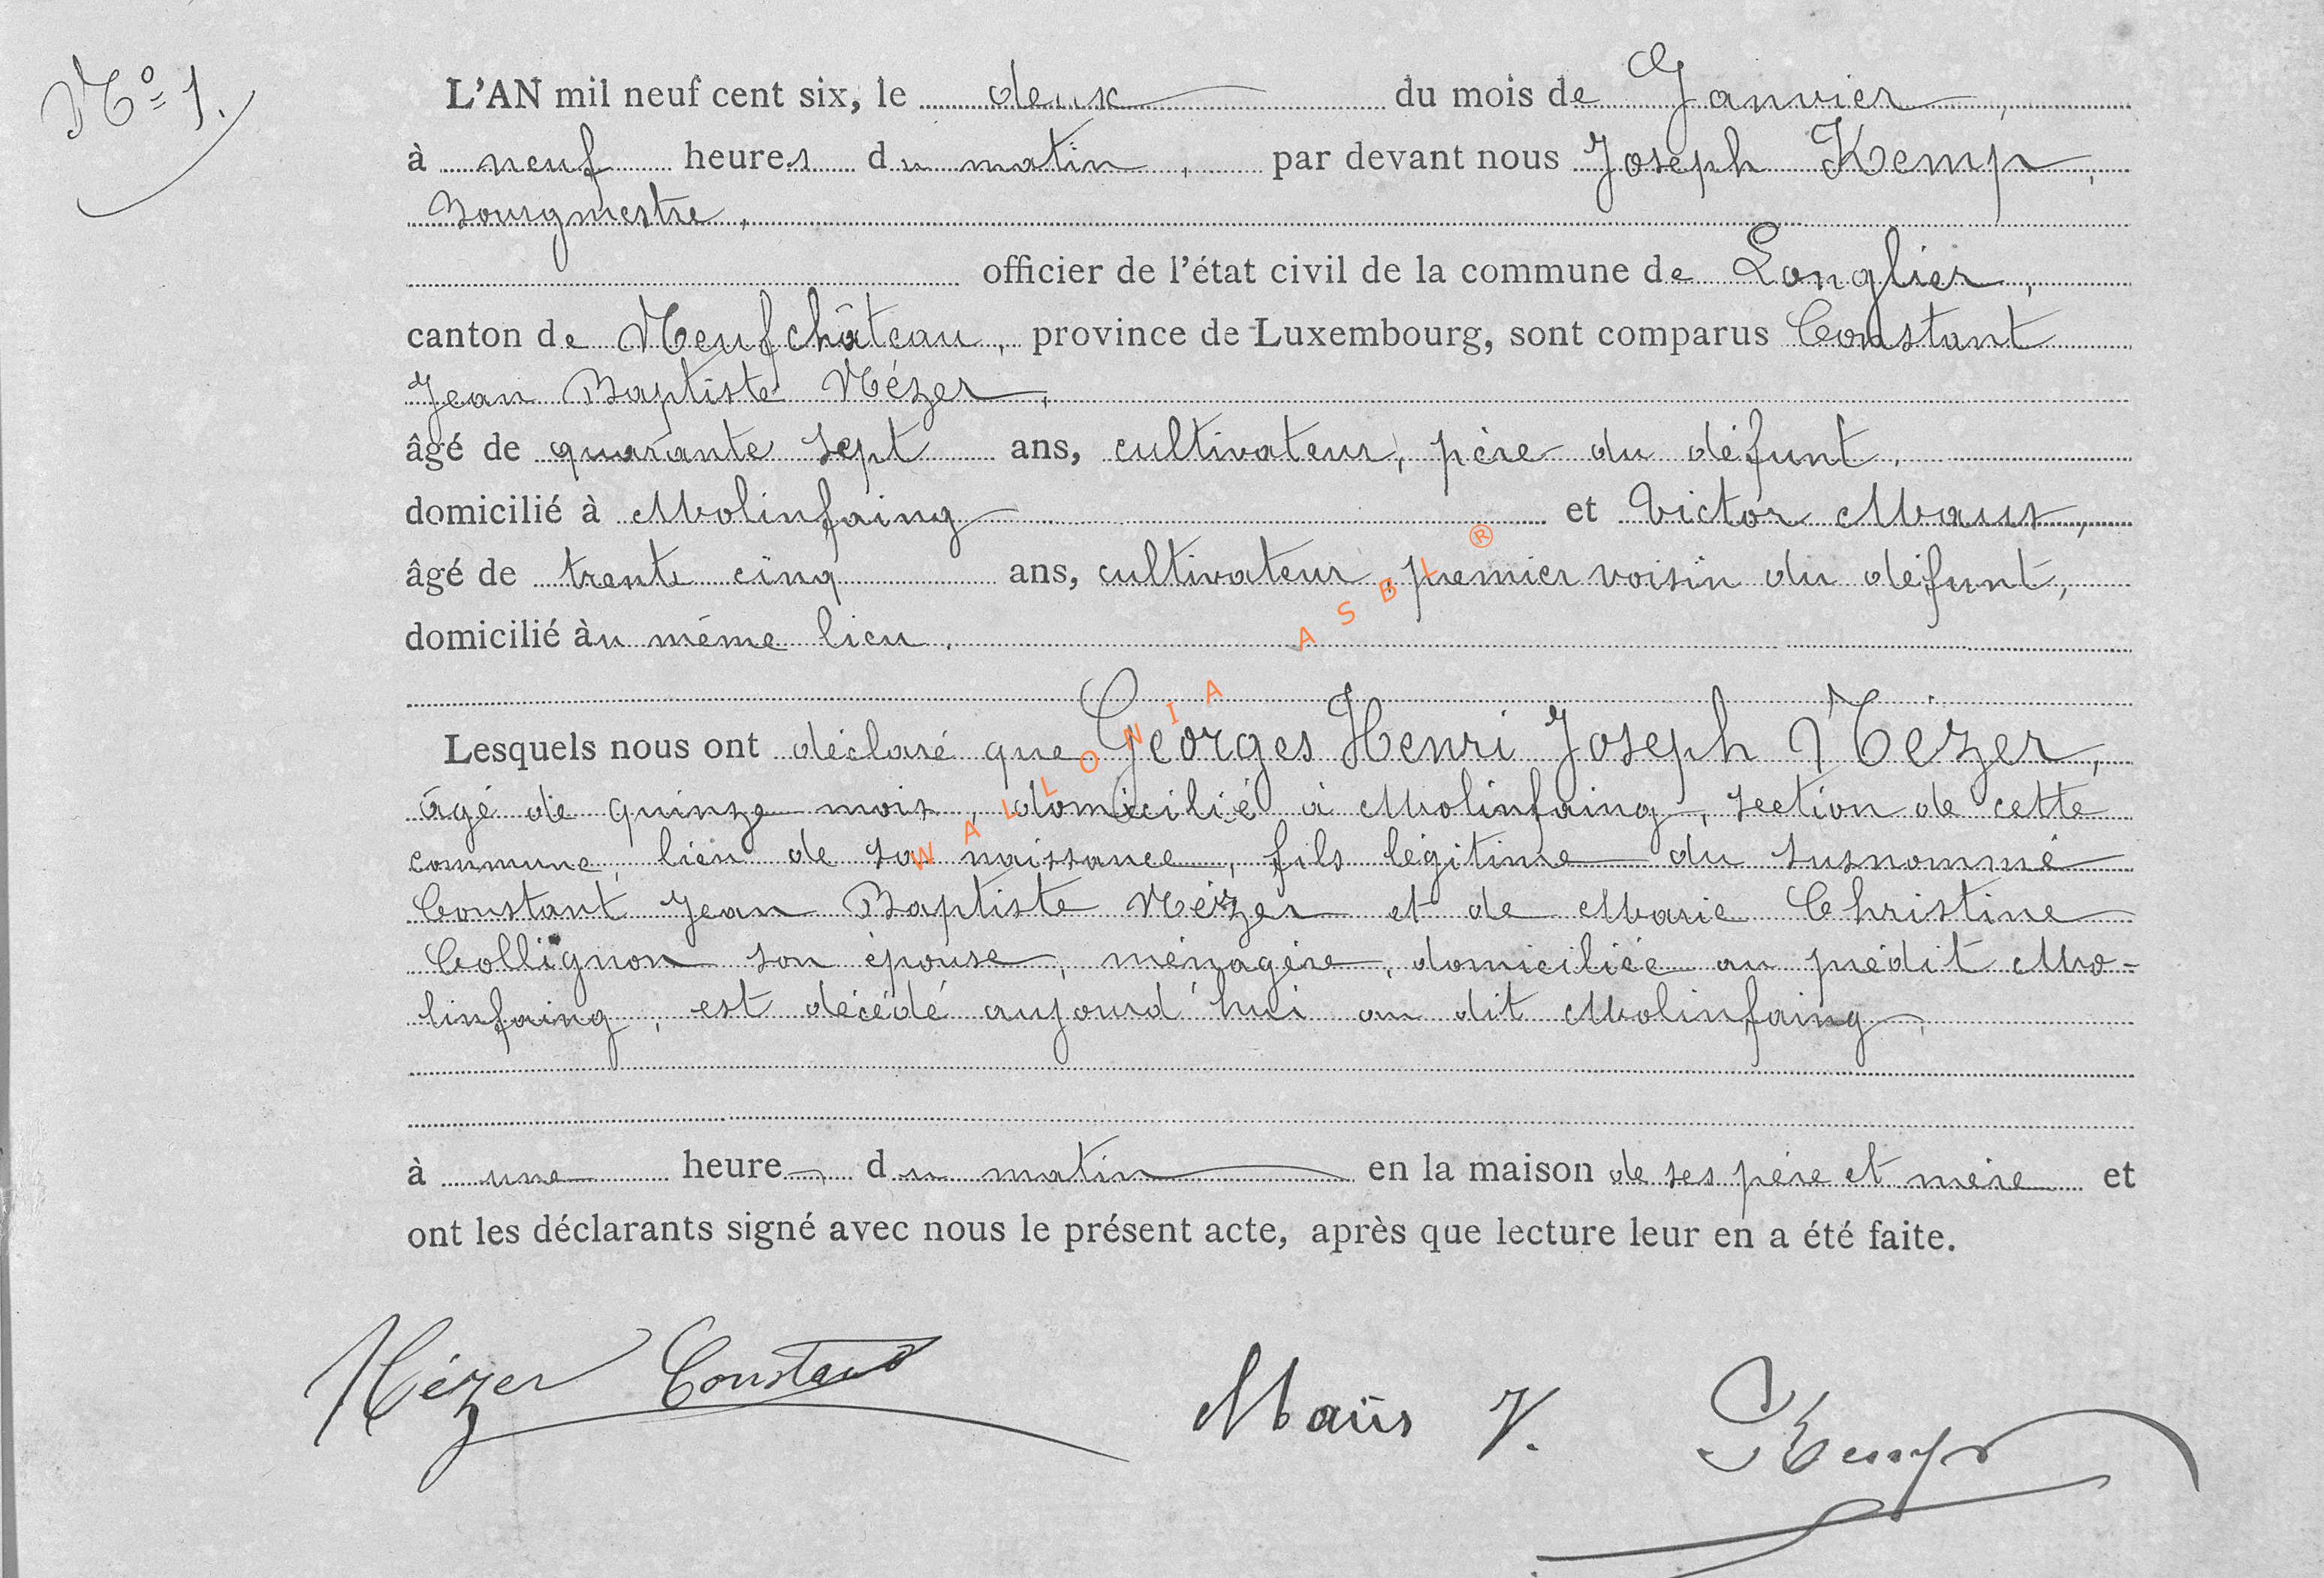 Nº 1.
L'AN mil neuf cent six, le deux du mois de Janvier,
à neuf heures du matin, par devant nous Joseph Kemp,
Bourgmestre,
officier de l'état civil de la commune de Longlier,
canton de Neufchâteau, province de Luxembourg, sont comparus Constant
Jean Baptiste Nézer,
âgé de quarante sept ans, cultivateur, père du défunt,
domicilié à Molinfaing et Victor Maus,
âgé de trente cinq ans, cultivateur, premier voisin du défunt,
domicilié àu même lieu.
Lesquels nous ont déclaré que Georges Henri Joseph Nézer,
âgé de quinze mois, domicilié à Molinfaing, section de cette
commune, lieu de sa naissance, fils légitime du susnommé
Constant Jean Baptiste Nézer et de Marie Christine
Collignon son épouse, ménagère, domiciliée au prédit Mo-
linfaing, est décédé aujourd'hui au dit Molinfaing,
à une heure du matin en la maison de ses père et mère et
ont les déclarants signé avec nous le présent acte, après que lecture leur en a été faite.
Nézer Constant Maüs V. Kemp
WALLONIA ASBL ®